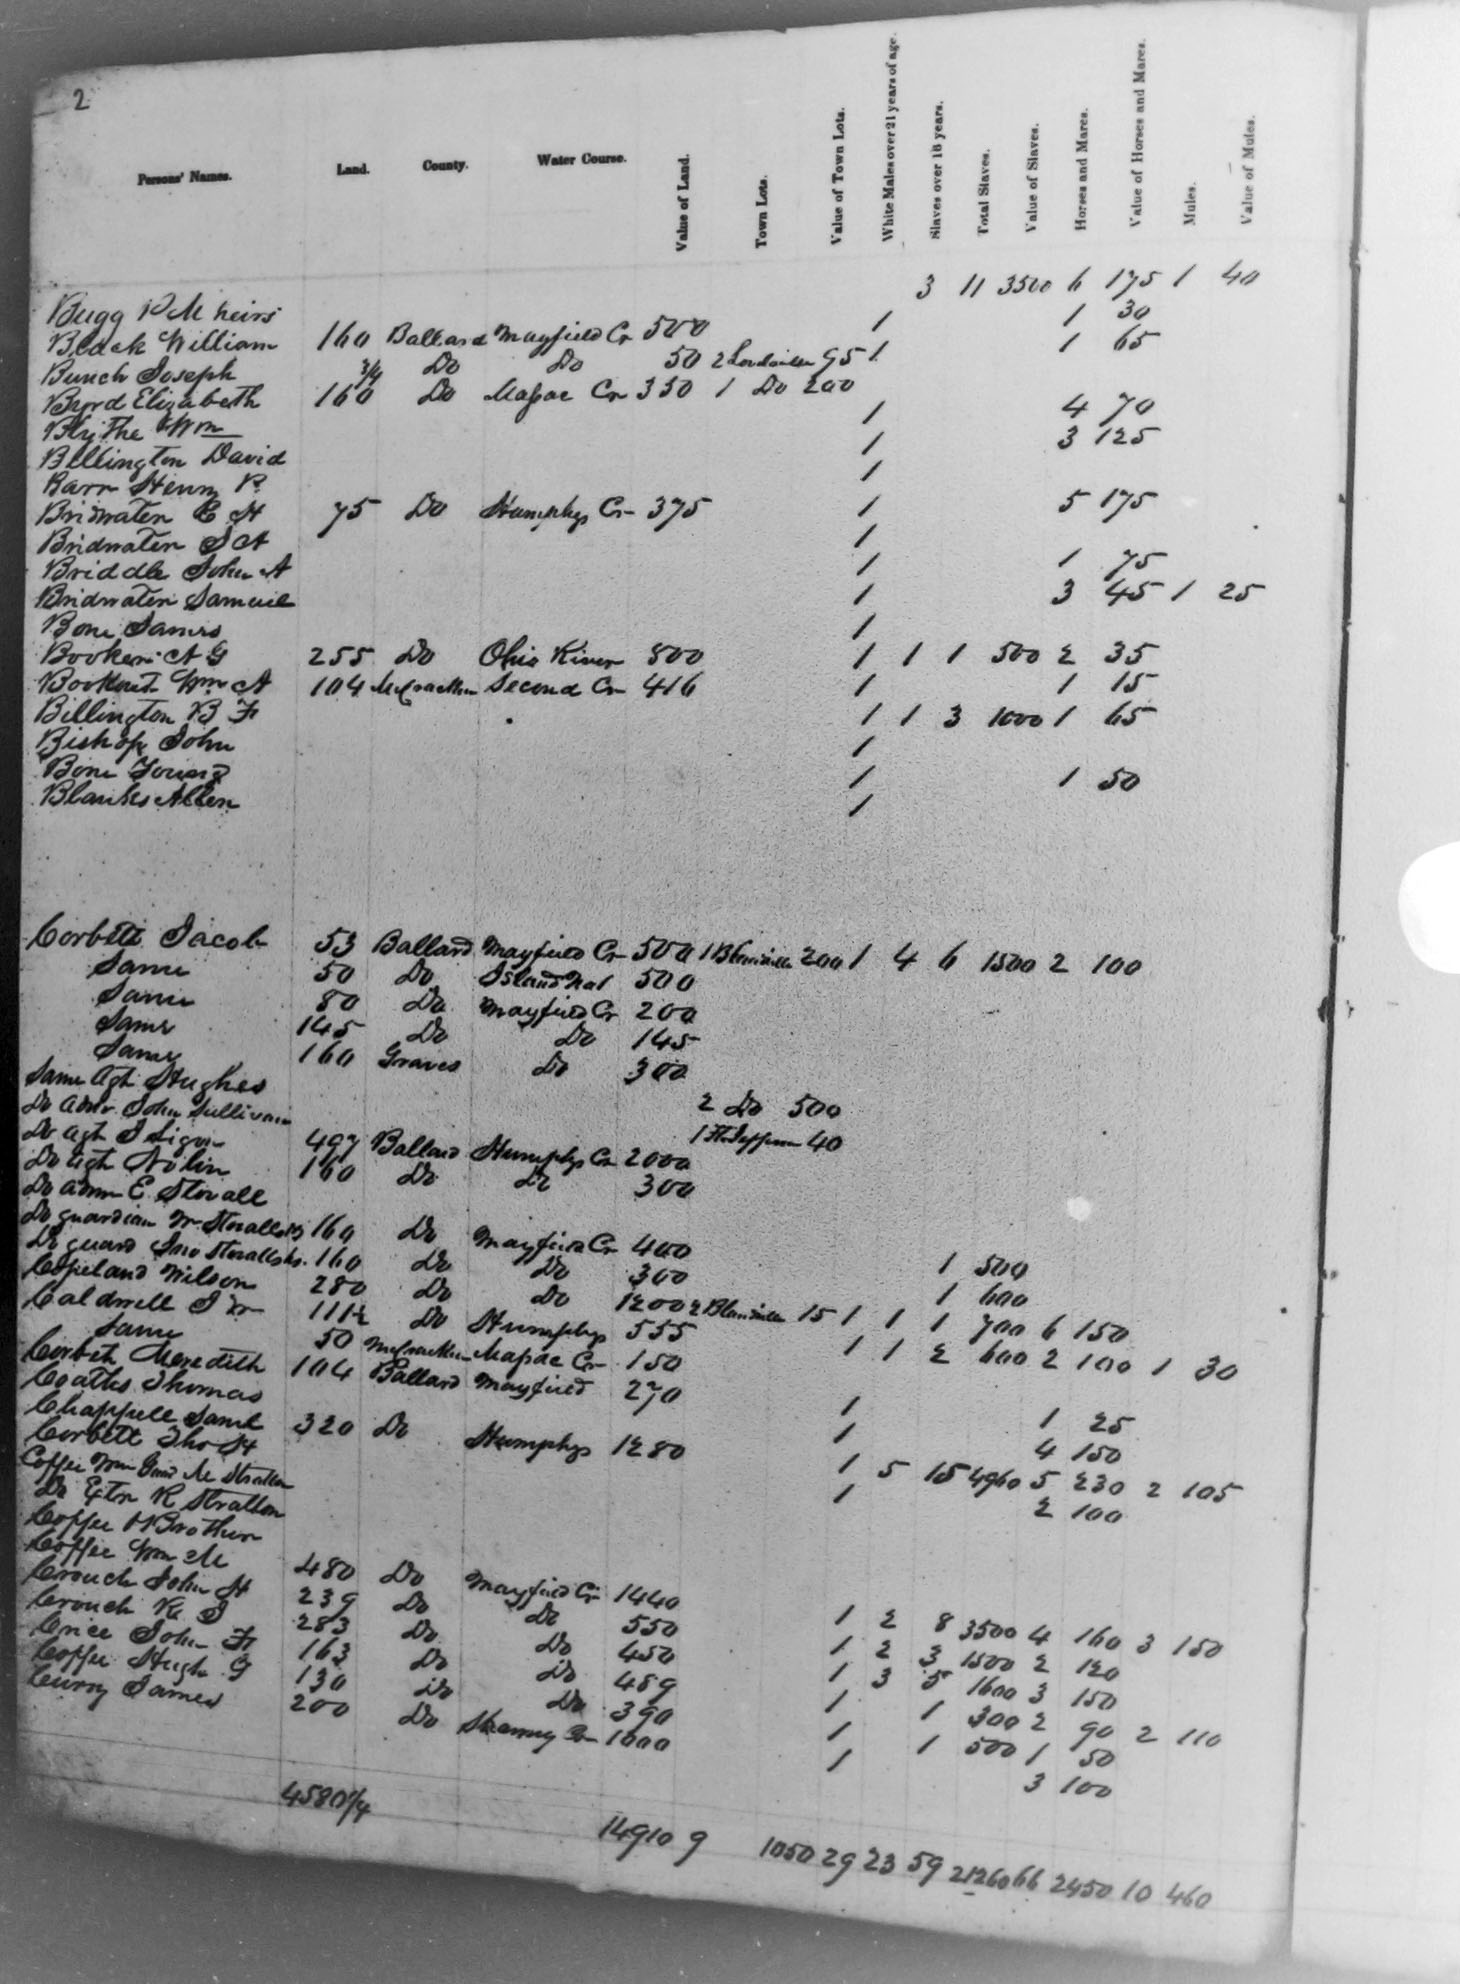 2
Persons' Names. Land. County. Water Course. Value of Land. Town Lots. Value of Town Lots. White Males over 21 years of age. Slaves over 16 years. Total Slaves. Value of Slaves. Horses and Mares. Value of Horses and Mares. Mules. Value of Mules.
Bugg P M heirs 3 11 3500 6 175 1 40
Black William 160 Ballard Mayfield Cr 500 1 1 30
Bunch Joseph 3/4 Do Do 50 2 95 1 1 65
Byrd Elizabeth 160 Do Mapac Cr 330 1 Do 200
Blythe Wm 1 4 70
Billington David 1 3 125
Barr Henry P. 1
Bridwater E H 75 Do Humphys Cr 375 1 5 175
Bridwater S A 1
Briddle John A 1 1 75
Bridwater Samuel 1 3 45 1 25
Bone James 1
Booker A G 255 Do Ohio River 800 1 1 1 500 2 35
Bookout Wm A 104 McCracken Second Cr 416 1 1 15
Billington B F 1 1 3 1000 1 65
Bishop John 1
Bone Young 1 1 50
Blanks Allen 1
Corbett Jacob 53 Ballard Mayfield Cr 500 1 Blandville 200 1 4 6 1500 2 100
Same 50 Do Island 500
Same 80 Do Mayfield Cr 200
Same 145 Do Do 145
Same 160 Graves Do 300
Same Agt Hughes 2 Do 500
Do Admr John Sullivan 1 Ft Jefferson 40
Do Agt J Ligon 497 Ballard Humphys Cr 2000
Do Agt Nolin 160 Do Do 300
Do Admr E Stovall
Do guardian W. Stovalls 160 Do Mayfield Cr 400 1 500
Do guard Jno Stovalls hs. 160 Do Do 300 1 600
Copeland Wilson 280 Do Do 1200 2 Blandville 15 1 1 1 700 6 150
Caldwell J W 111 1/2 Do Humphys 555 1 1 2 600 2 100 1 30
Same 50 McCracken Mapac Cr 150
Corbett Meredith 104 Ballard Mayfield 270 1 1 25
Coaths Thomas 1 4 150
Chappell Saml 320 Do Humphys 1280 1 5 15 4960 5 230 2 105
Corbett Tho H 1 2 100
Coffee Wm Guard M Stratton
Do Extr R Stratton
Coffee & Brother
Coffee Wm M 480 Do Mayfield Cr 1440 1 2 8 3500 4 160 3 150
Crouch John H 239 Do Do 550 1 2 3 1500 2 120
Crouch R J 283 Do Do 450 1 3 5 1600 3 150
Crice John F 163 Do Do 489 1 1 300 2 90 2 110
Coffee Hugh G 130 Do Do 390 1 1 500 1 50
Curry James 200 Do Shawny Cr 1000 1 3 100
4580 1/4 14910 9 1050 29 23 59 21260 66 2450 10 460